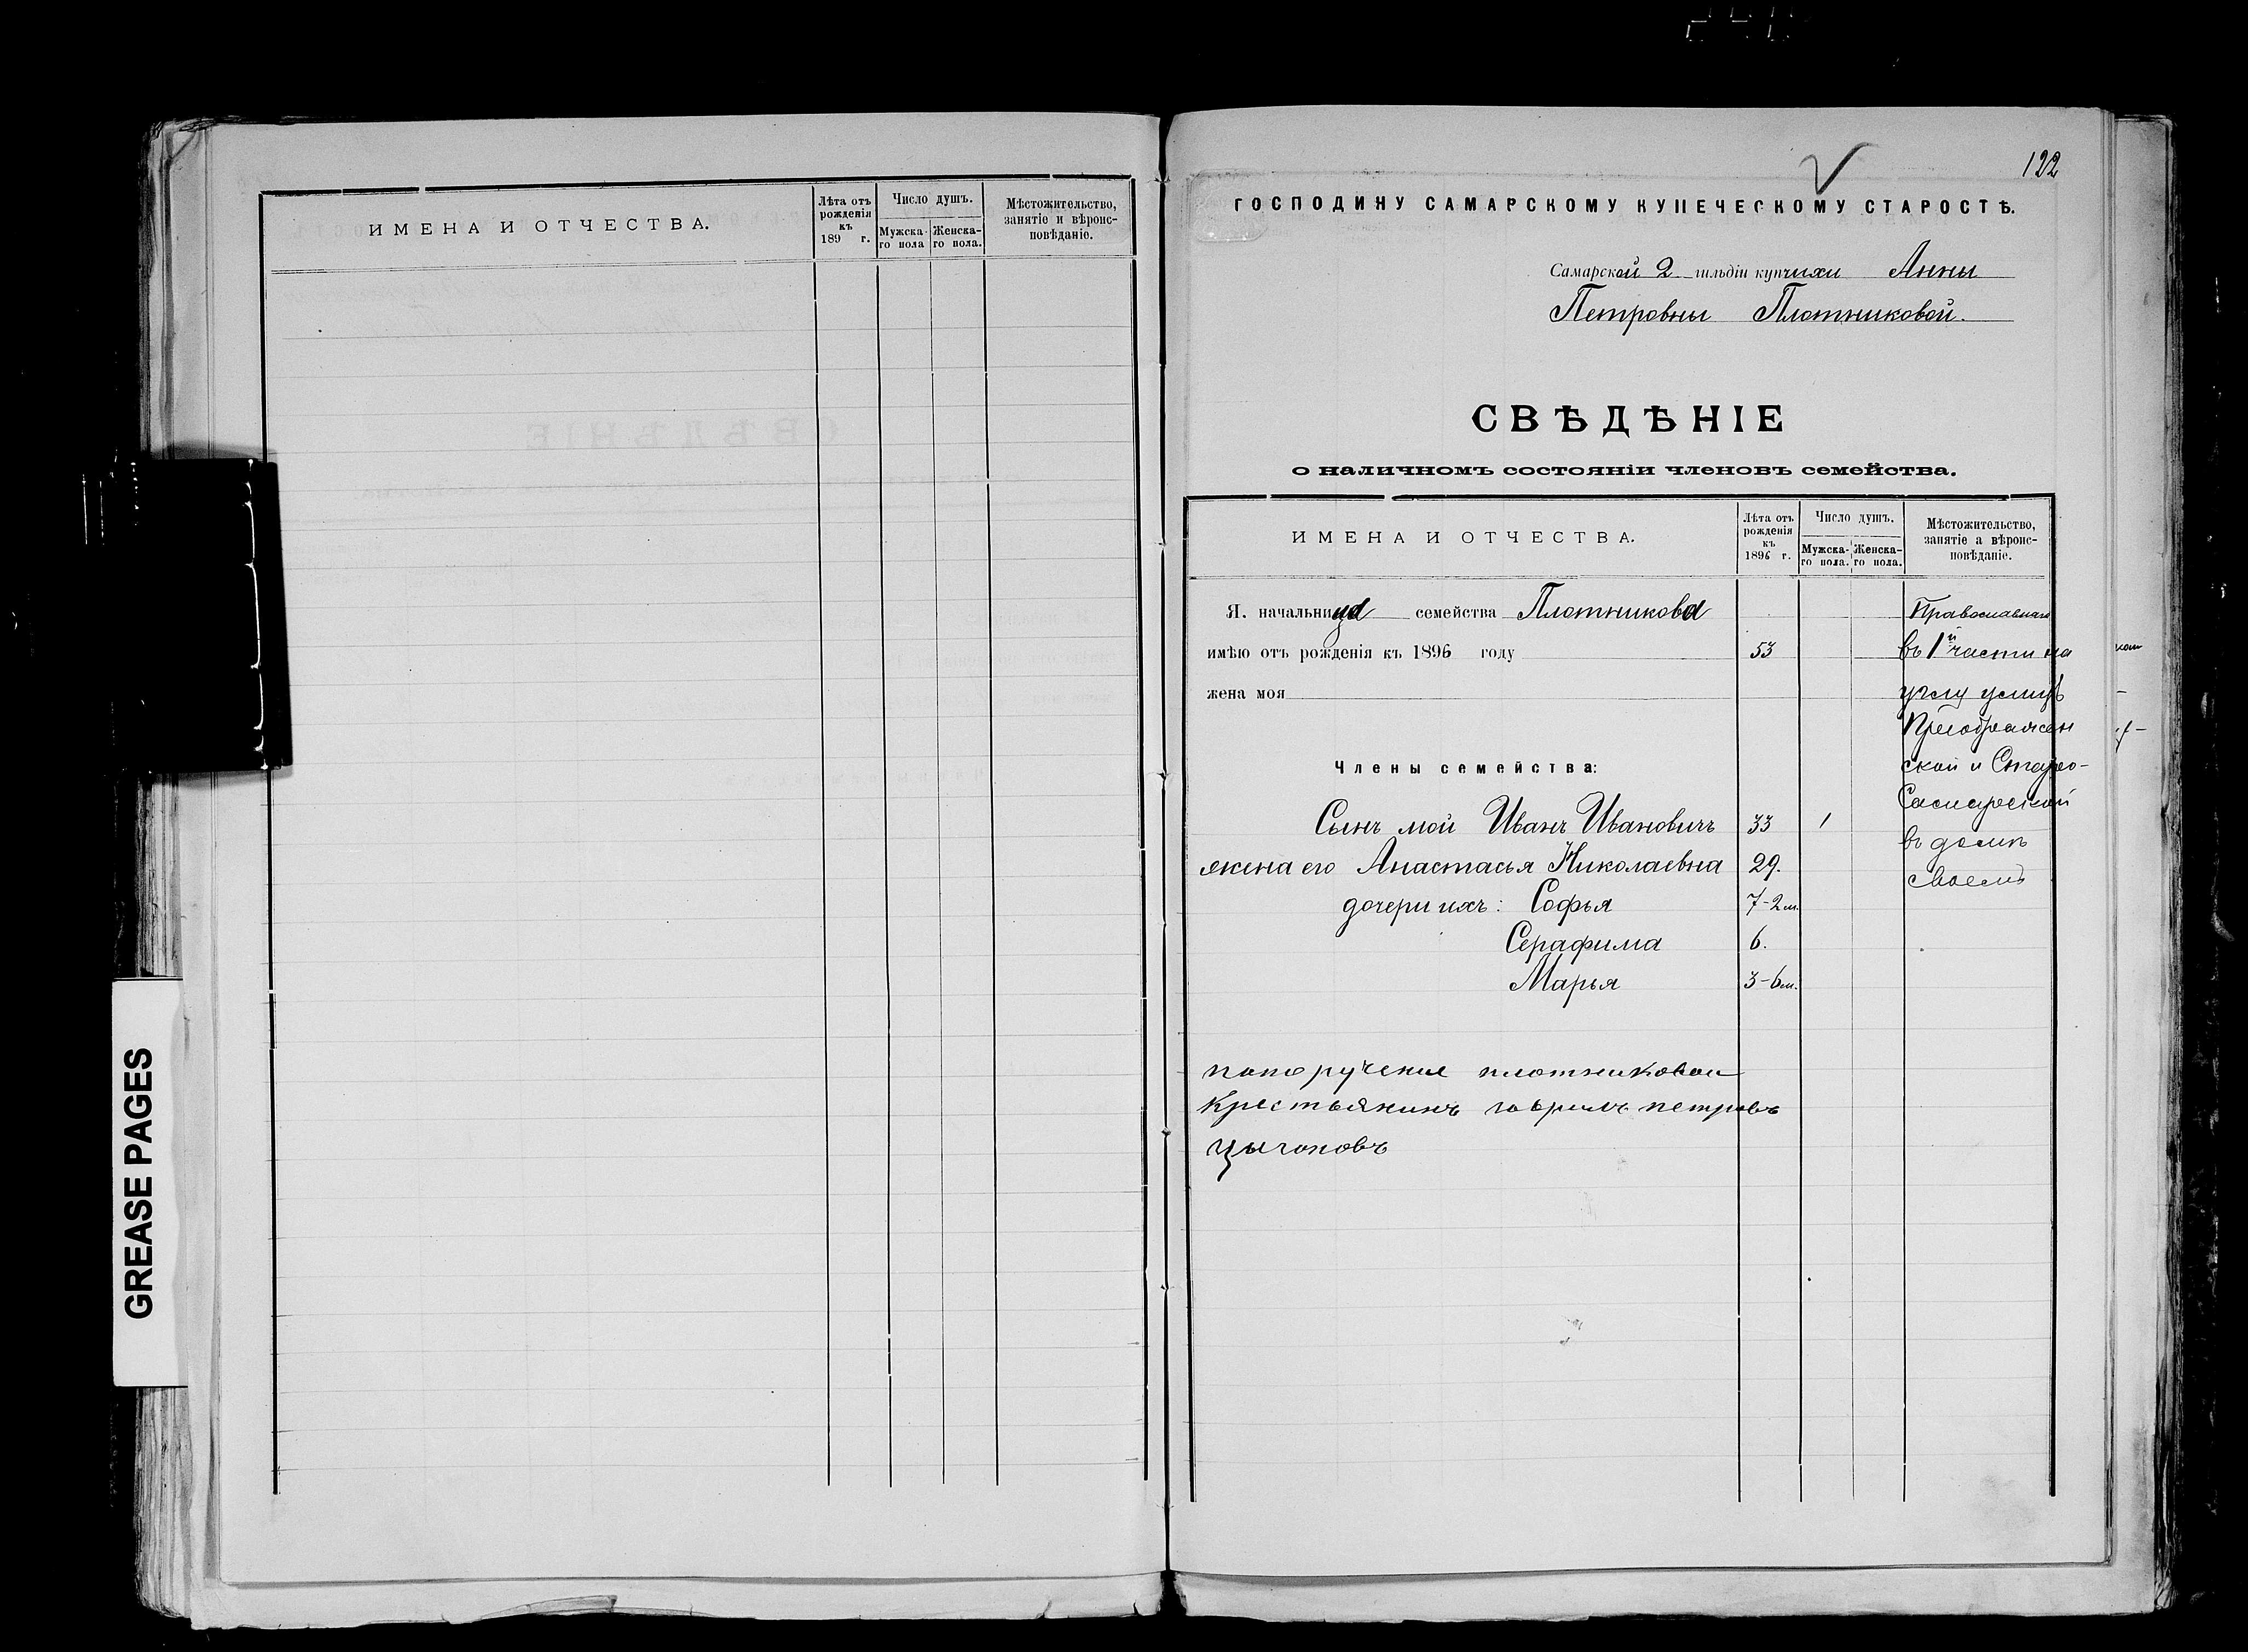 GREASE PAGES
ИМЕНА И ОТЧЕСТВА.
Лѣта отъ рожденія къ 189 г.
Число душъ.
Мужска-го пола
Женска-го пола.
Мѣстожительство, занятіе и вѣроис-повѣданіе.
122
ГОСПОДИНУ САМАРСКОМУ КУПЕЧЕСКОМУ СТАРОСТѢ.
Самарской 2 гильдіи купчихи Анны
Петровны Плотниковой.
СВѢДѢНІЕ
о наличномъ состояніи членовъ семейства.
ИМЕНА И ОТЧЕСТВА.
Лѣта отъ рожденія къ 1896 г.
Число душъ.
Мужска-го пола.
Женска-го пола.
Мѣстожительство, занятіе а вѣроис-повѣданіе.
Я. начальница семейства Плотникова
имѣю отъ рожденія къ 1896 году 53
жена моя
Члены семейства:
Сынъ мой Иванъ Ивановичъ 33 1
жена его Анастасья Николаевна 29.
дочери ихъ: Софья 7-2 м.
Серафима 6.
Марья 3-6 м.
Православная
въ 1й части на
углу улицъ
Преображен
ской и Старо-
Самарской
въ домѣ
своемъ
попоручение плотниковои
Крестьянинъ говрилъ петровъ
цыгоновъ